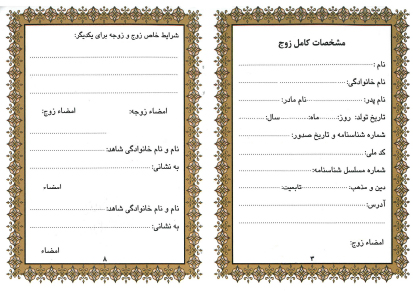 مشخصات کامل زوج
نام :
نام خانوادگی:
نام پدر: نام مادر:
تاریخ تولد: روز: ماه: سال:
شماره شناسنامه و تاریخ صدور:
کد ملی:
شماره مسلسل شناسنامه:
دین و مذهب: تابعیت:
آدرس:
امضاء زوج:
۳
شرایط خاص زوج و زوجه برای یکدیگر:
امضاء زوجه: امضاء زوج:
نام و نام خانوادگی شاهد:
به نشانی:
امضاء
نام و نام خانوادگی شاهد:
به نشانی:
امضاء
۸